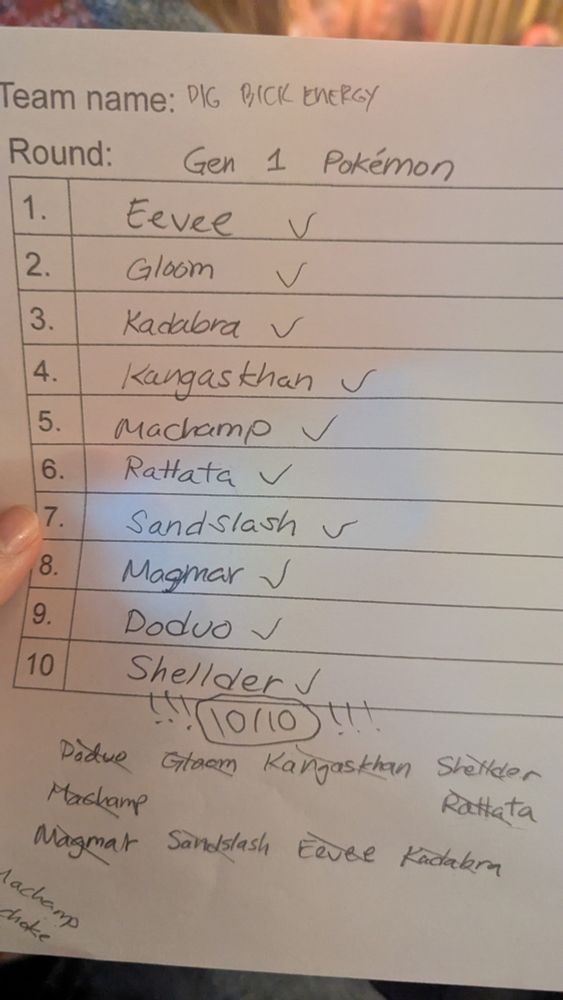 Team name: DIG BICK ENERGY
Round: Gen 1 Pokémon
1. Eevee ✓
2. Gloom ✓
3. Kadabra ✓
4. Kangaskhan ✓
5. Machamp ✓
6. Rattata ✓
7. Sandslash ✓
8. Magmar ✓
9. Doduo ✓
10 Shellder ✓
!!! 10/10 !!!
Doduo Gloom Kangaskhan Shellder
Machamp Rattata
Magmar Sandslash Eevee Kadabra
Machamp
choke